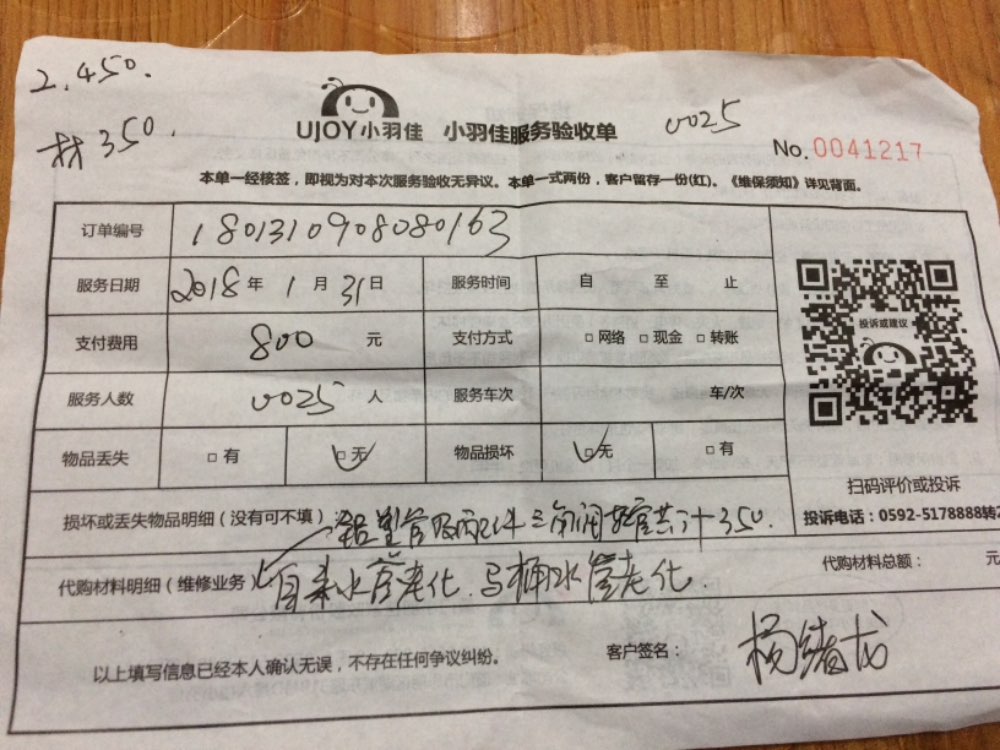 2.450.
材350.
UJOY小羽佳 小羽佳服务验收单 0025
No.0041217
本单一经核签，即视为对本次服务验收无异议。本单一式两份，客户留存一份(红)。《维保须知》详见背面。
订单编号 180131090808０163
服务日期 2018年 1月 31日 服务时间 自 至 止
支付费用 800 元 支付方式 □网络 □现金 □转账
投诉或建议
服务人数 0025 人 服务车次 车/次
物品丢失 □有 □无 物品损坏 □无 □有
扫码评价或投诉
投诉电话：0592-5178888转2
损坏或丢失物品明细（没有可不填） 铝塑管及配件三角阀软管共计350.
代购材料明细（维修业务） 自来水管老化.马桶水管老化.
代购材料总额： 元
以上填写信息已经本人确认无误，不存在任何争议纠纷。
客户签名： 杨绪龙